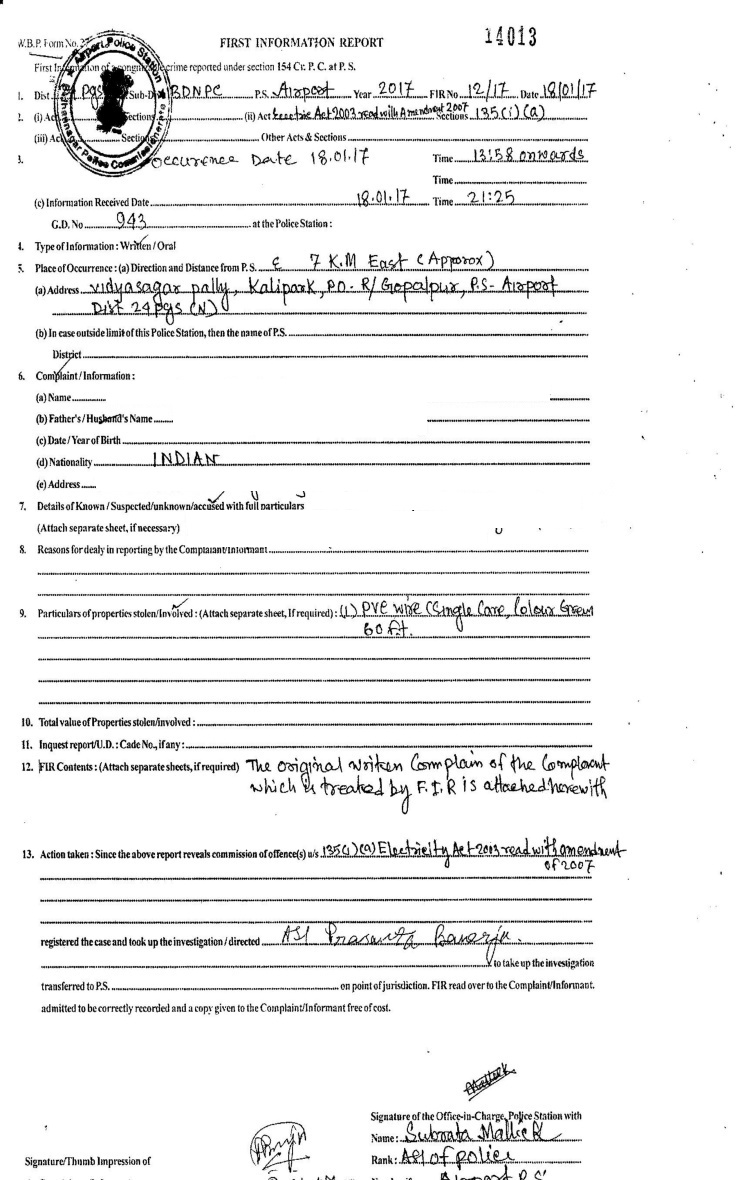 14013
W.B.P. Form No. 27
FIRST INFORMATION REPORT
First Information of a congnizable crime reported under section 154 Cr. P. C. at P. S.
Airport Police Station
Bidhannagar Police Commissionerate
1. Dist Pgs Sub-Div BDNPC P.S. Airport Year 2017 FIR No 12/17 Date 18/01/17
2. (i) Act Sections (ii) Act Electric Act 2003 read with Amendment 2007 Sections 135(i)(a)
(iii) Act Sections Other Acts & Sections
3. Occurence Date 18.01.17 Time 13:58 onwards
Time
(c) Information Received Date 18.01.17 Time 21:25
G.D. No 943 at the Police Station :
4. Type of Information : Written / Oral
5. Place of Occurrence : (a) Direction and Distance from P. S. 7 K.M East (Approx)
(a) Address vidyasagar pally, Kalipark, PO- R/Gopalpur, P.S- Airport
Dist 24 pgs (N)
(b) In case outside limit of this Police Station, then the name of P.S.
District
6. Complaint / Information :
(a) Name
(b) Father's / Husband's Name
(c) Date / Year of Birth
(d) Nationality INDIAN
(e) Address
7. Details of Known / Suspected/unknown/accused with full particulars
(Attach separate sheet, if necessary)
8. Reasons for dealy in reporting by the Complaiant/Informant
9. Particulars of properties stolen/Involved : (Attach separate sheet, If required) : (1) PVC wire (Single Core, Colour Green
60 ft.
10. Total value of Properties stolen/involved :
11. Inquest report/U.D. : Cade No., if any :
12. FIR Contents : (Attach separate sheets, if required) The original written Complain of the Complanant
which is treated by F.I.R is attached herewith
13. Action taken : Since the above report reveals commission of offence(s) u/s 135(1)(a) Electricity Act-2003 read with amendment
of 2007
registered the case and took up the investigation / directed ASI Prasanta Banerjee.
to take up the investigation
transferred to P.S. on point of jurisdiction. FIR read over to the Complaint/Informant.
admitted to be correctly recorded and a copy given to the Complaint/Informant free of cost.
Signature of the Office-in-Charge, Police Station with
Name : Subrata Mallick
Signature/Thumb Impression of
Rank : ASI of police
Airport P.S.